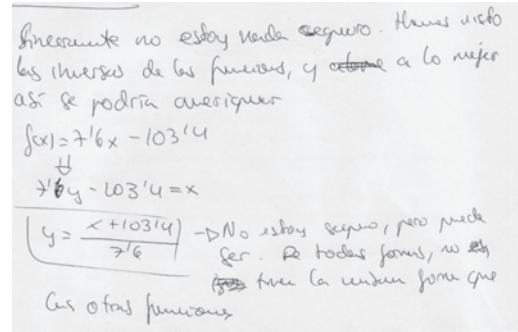 Sinceramente no estoy nada seguro. Hemos visto
las inversas de las funciones, y a lo mejor
así se podría averiguar
f(x) = 7'6x - 103'4
⇓
7'6y - 103'4 = x
y = x + 103'4 / 7'6 → No estoy seguro, pero puede
ser. De todas formas, no
tiene la misma forma que
las otras funciones